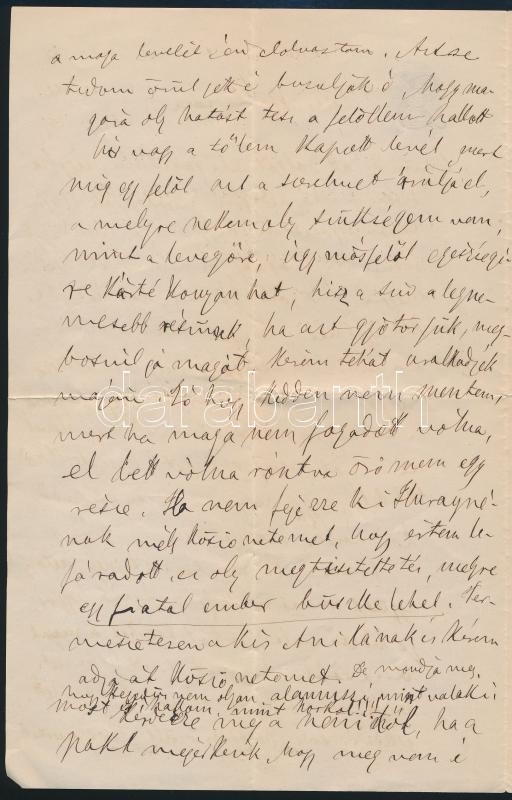 a maga levelét én elolvastam. Azt se
tudom örüljek é busuljak é, hogy ma-
gára oly hatást tesz a felőllem hallott
hir vagy a tőlem kapott levél, mert
mig egy felöl azt a szerelmet árulja el,
a melyre nekem oly szükségem van,
mint a levegőre, úgy másfelöl egészségé-
re kártékonyan hat, hisz a sziv a legne-
mesebb részünk, ha azt gyötörjük, meg-
boszulja magát. Kérem tehát uralkodjék
magán. Jó hogy kedden nem mentem,
mert ha maga nem fogadott volna,
el lett volna rontva örömem egy
része. Ha nem fejezze ki
nak mély köszönetemet, hogy értem
fáradott, ez oly megtiszteltetés, melyre
egy fiatal ember büszke lehet. Ter-
mészetesen a kis Anikának is kérem
adja át köszönetemet. De mondja meg,
hogy nem olyan mint valaki
most is hallom, amint horkol!!!!
Kérdezze meg a nénitől, ha a
pakk megérkezik, hogy meg van é
darabanth